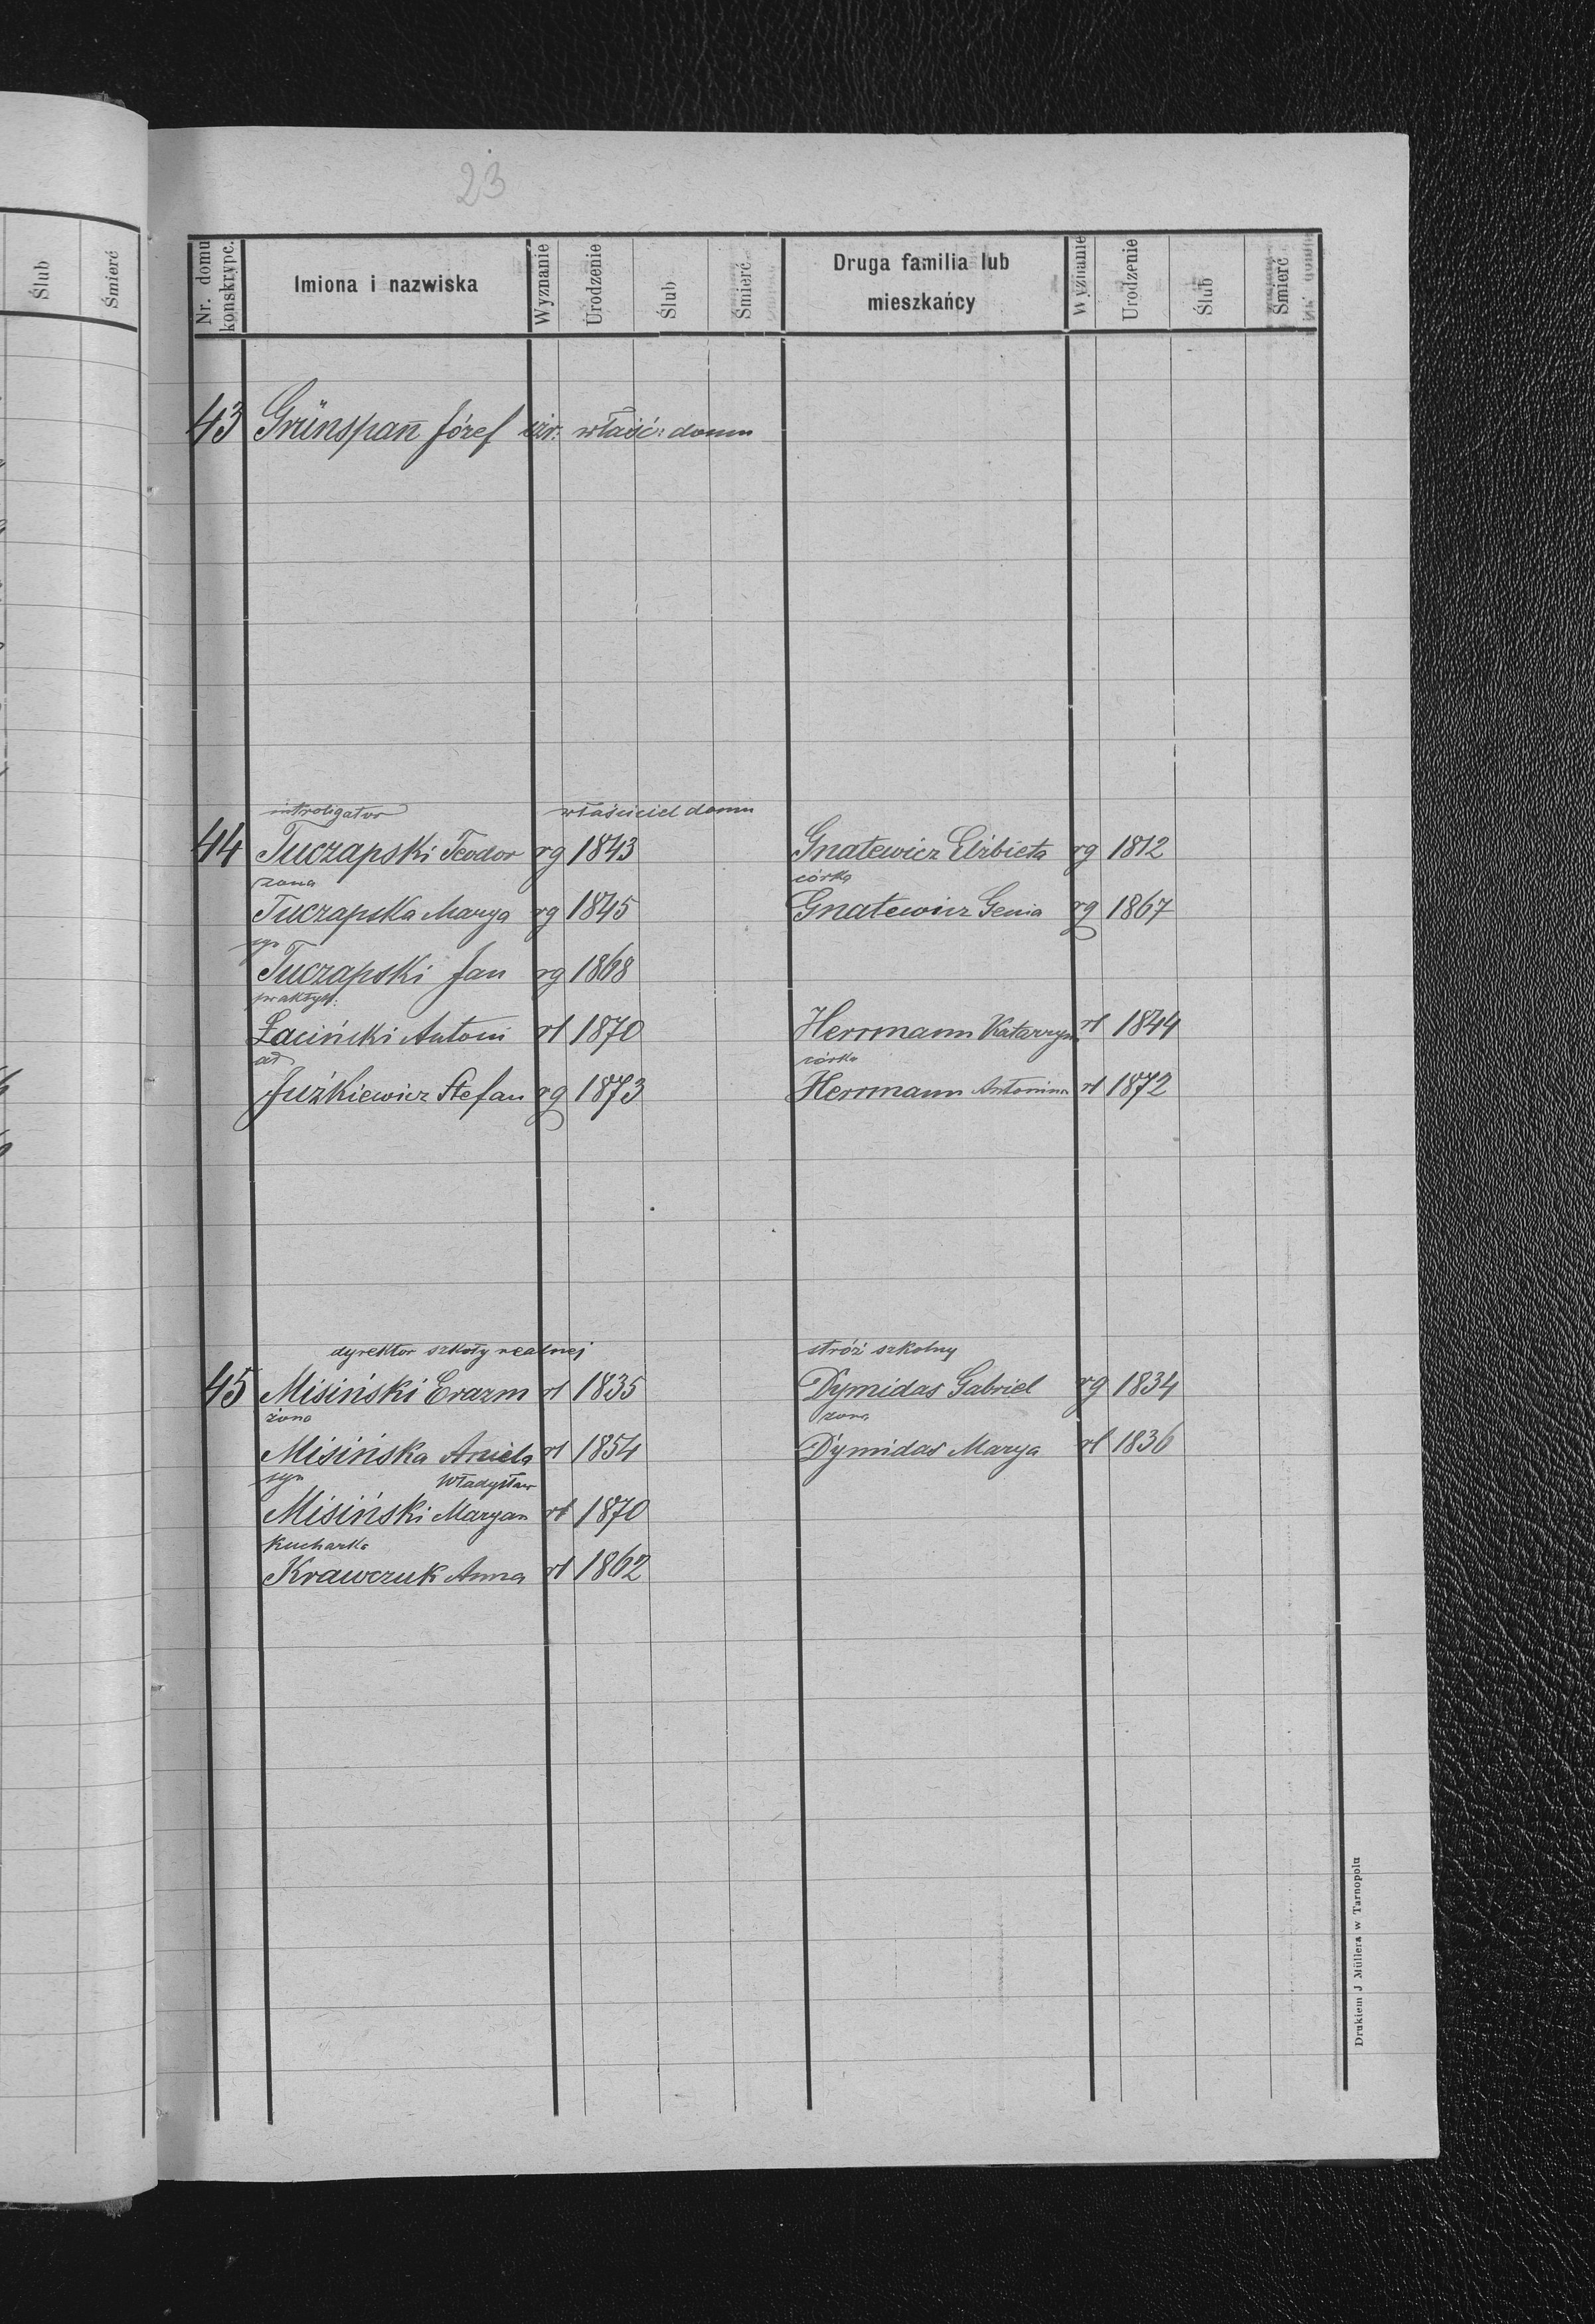 23
Ślub
Śmierć
Nr. domu konskrypc.
Imiona i nazwiska
Wyznanie
Urodzenie
Ślub
Śmierć
Druga familia lub
mieszkańcy
Wyznanie
Urodzenie
Ślub
Śmierć
43 Grünspan Józef izr: właść: domu
introligator właściciel domu
44 Tuczapski Teodor rg 1843
żona
Tuczapska Marya rg 1845
syn
Tuczapski Jan rg 1868
praktyk:
Łaciński Antoni rł 1870
Juźkiewicz Stefan rg 1873
Gnatewicz Elżbieta rg 1812
córka
Gnatewicz Genia rg 1867
Herrmann Katarzyna rł 1844
córka
Herrmann Antonina rł 1872
dyrektor szkoły realnej
45 Misiński Erazm rł 1835
żona
Misińska Aniela rł 1854
syn Władysław
Misiński Maryan rł 1870
Kucharka
Krawczuk Anna rł 1862
stróż szkolny
Dymidas Gabriel rg 1834
żona
Dymidas Marya rł 1836
Drukiem J Müllera w Tarnopolu